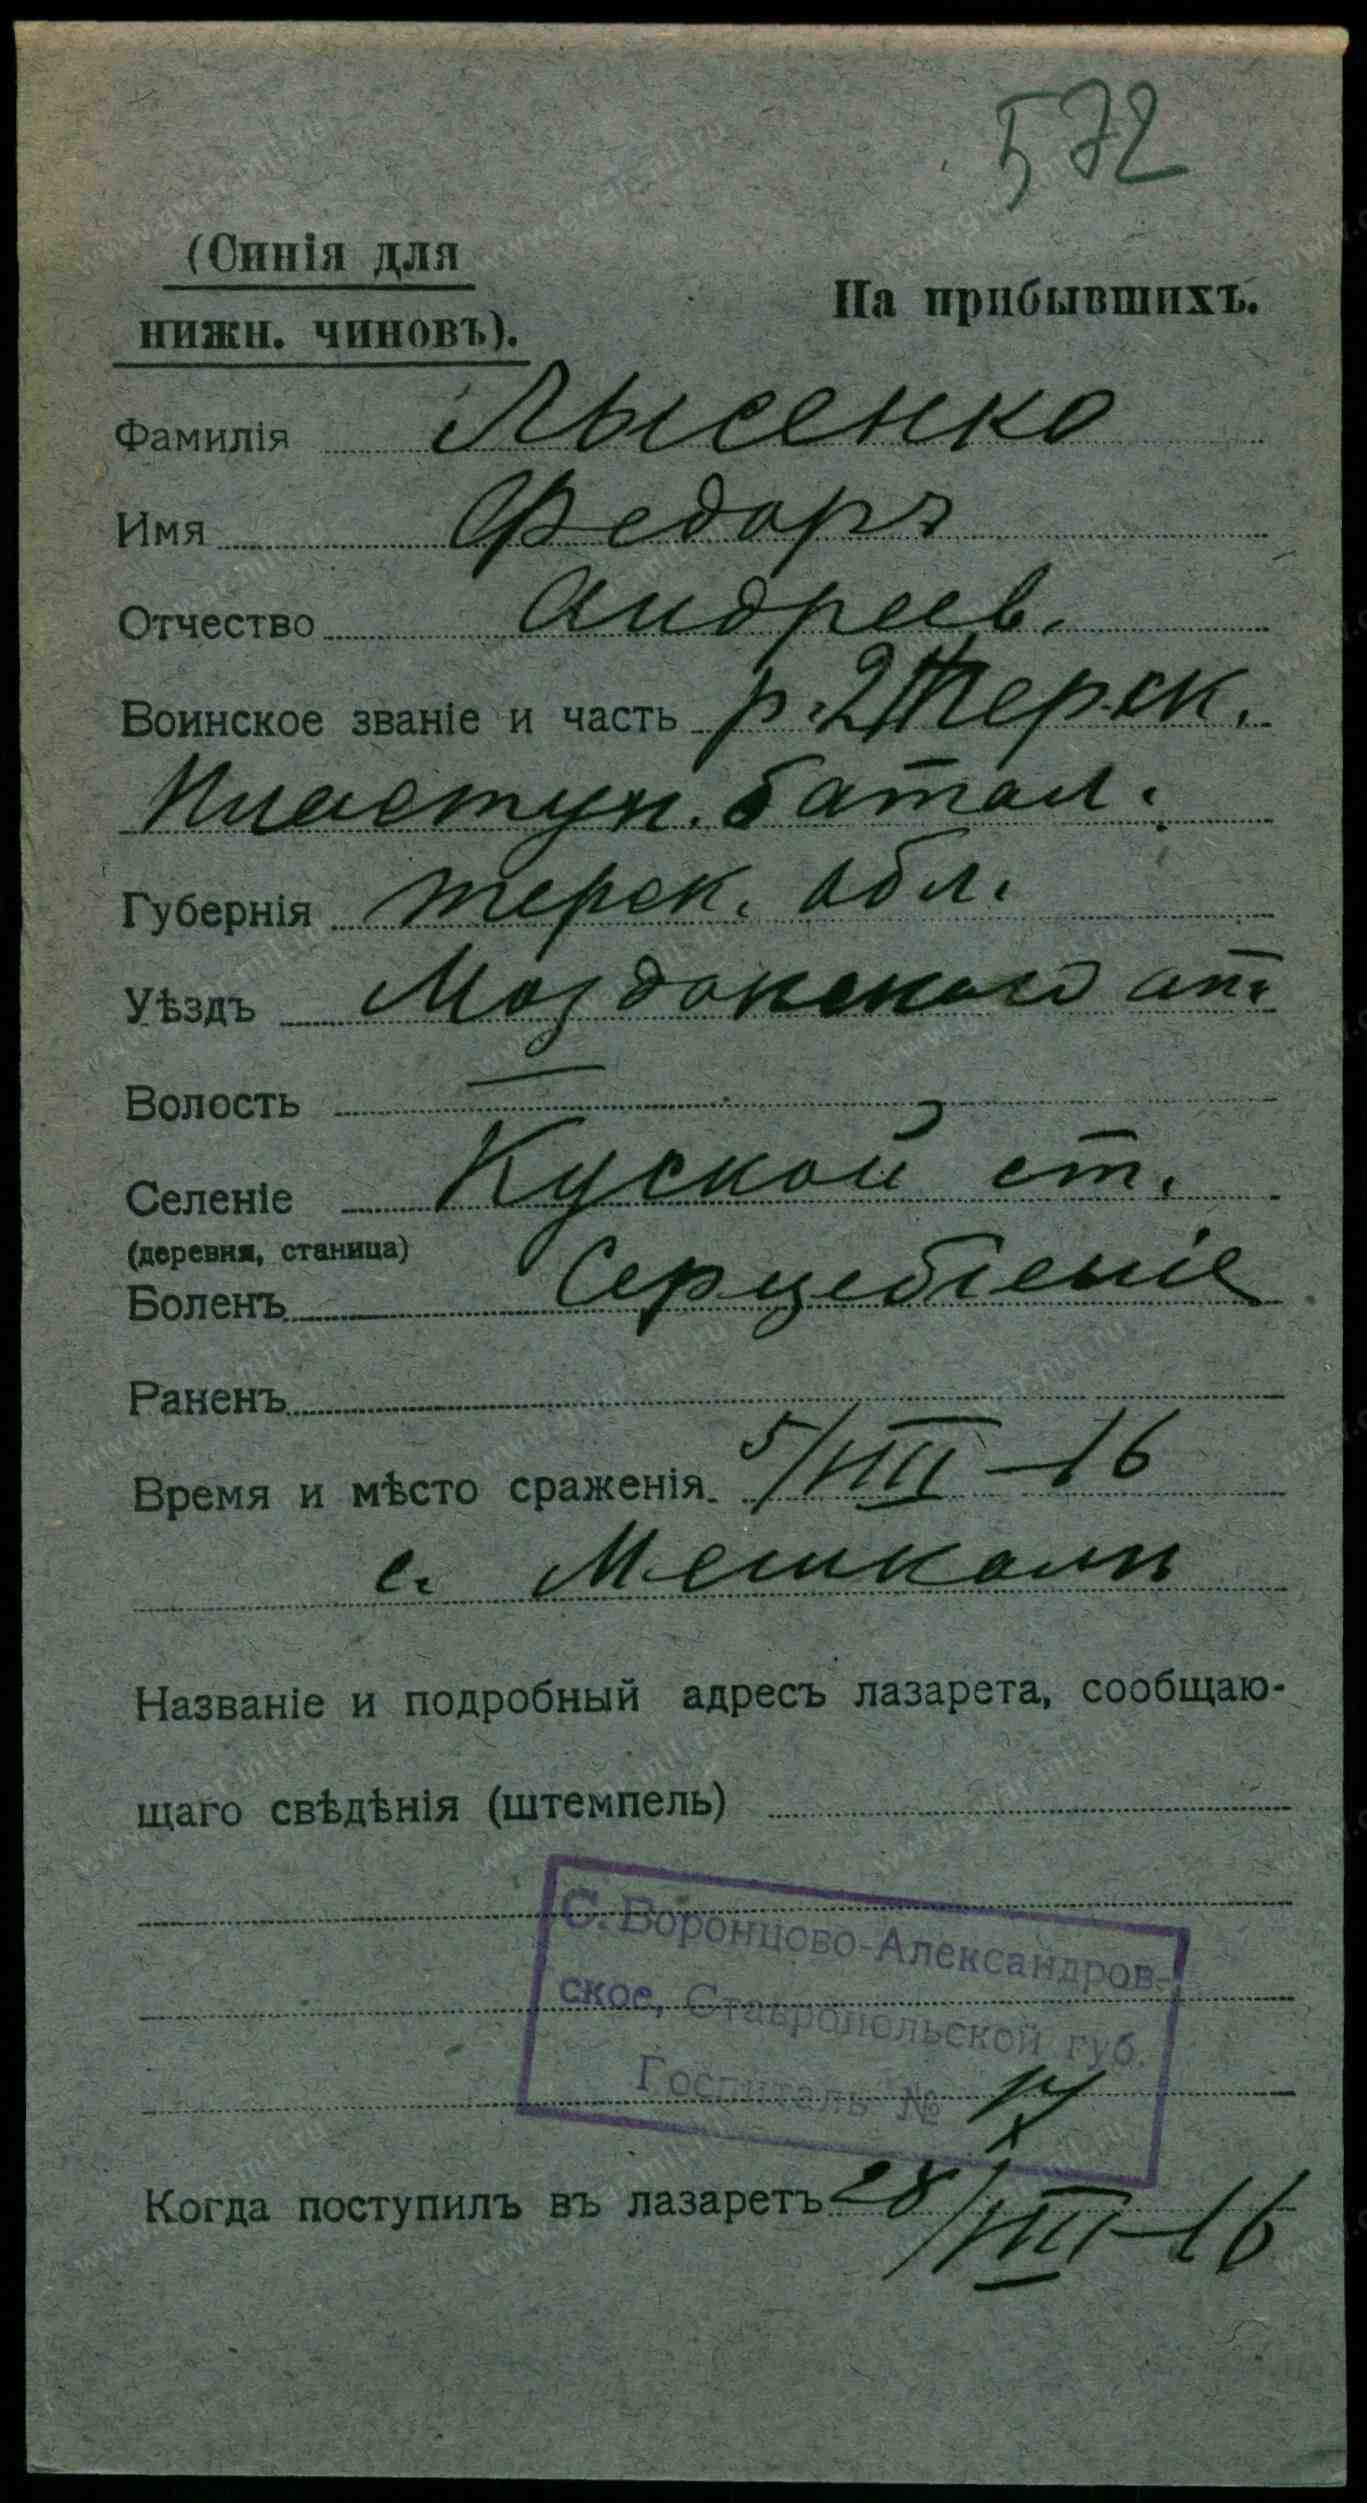 572
(Синія для
нижн. чиновъ).
На прибывшихъ.
Фамилія Лысенко
Имя Федоръ
Отчество Андреев.
Воинское званіе и часть р. 2 Терск.
Пластун. батал.
Губернія Терск. обл.
Уѣздъ Моздокскаго от.
Волость —
Селеніе Куской ст.
(деревня, станица)
Боленъ Серцебіеніе
Раненъ
Время и мѣсто сраженія. 5/VIII–16
с. Мешколи
Названіе и подробный адресъ лазарета, сообщаю-
щаго свѣдѣнія (штемпель)
С. Воронцово-Александров-
ское, Ставропольской губ.
Госпиталь №
Когда поступилъ въ лазаретъ 28/VIII–16
www.gwar.mil.ru